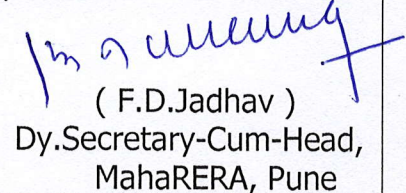 ( F.D.Jadhav )
Dy.Secretary-Cum-Head,
MahaRERA, Pune